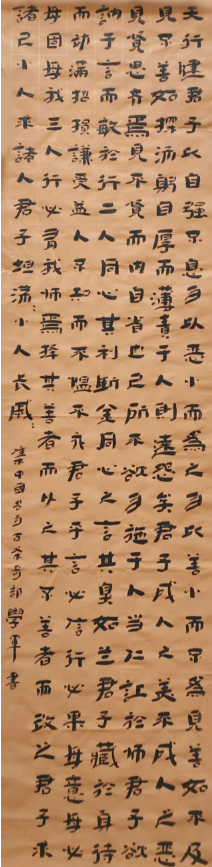 天行健君子以自强不息勿以恶小而為之勿以善小而不為見善如不及
見不善如探汤躬自厚而薄責于人則遠怨矣君子成人之美不成人之恶
見賢思齐焉見不賢而内自省也己所不欲勿施于人当仁让於師君子欲
訥于言而敏於行二人同心其利断金同心之言其臭如兰君子藏於身待
而动满招损謙受益人不知而不愠不亦君子乎言必信行必果毋意毋必
毋固毋我三人行必有我师焉择其善者而从之其不善者而改之君子求
諸己小人求諸人君子坦荡〻小人长戚〻
集中國名句百条 學軍書